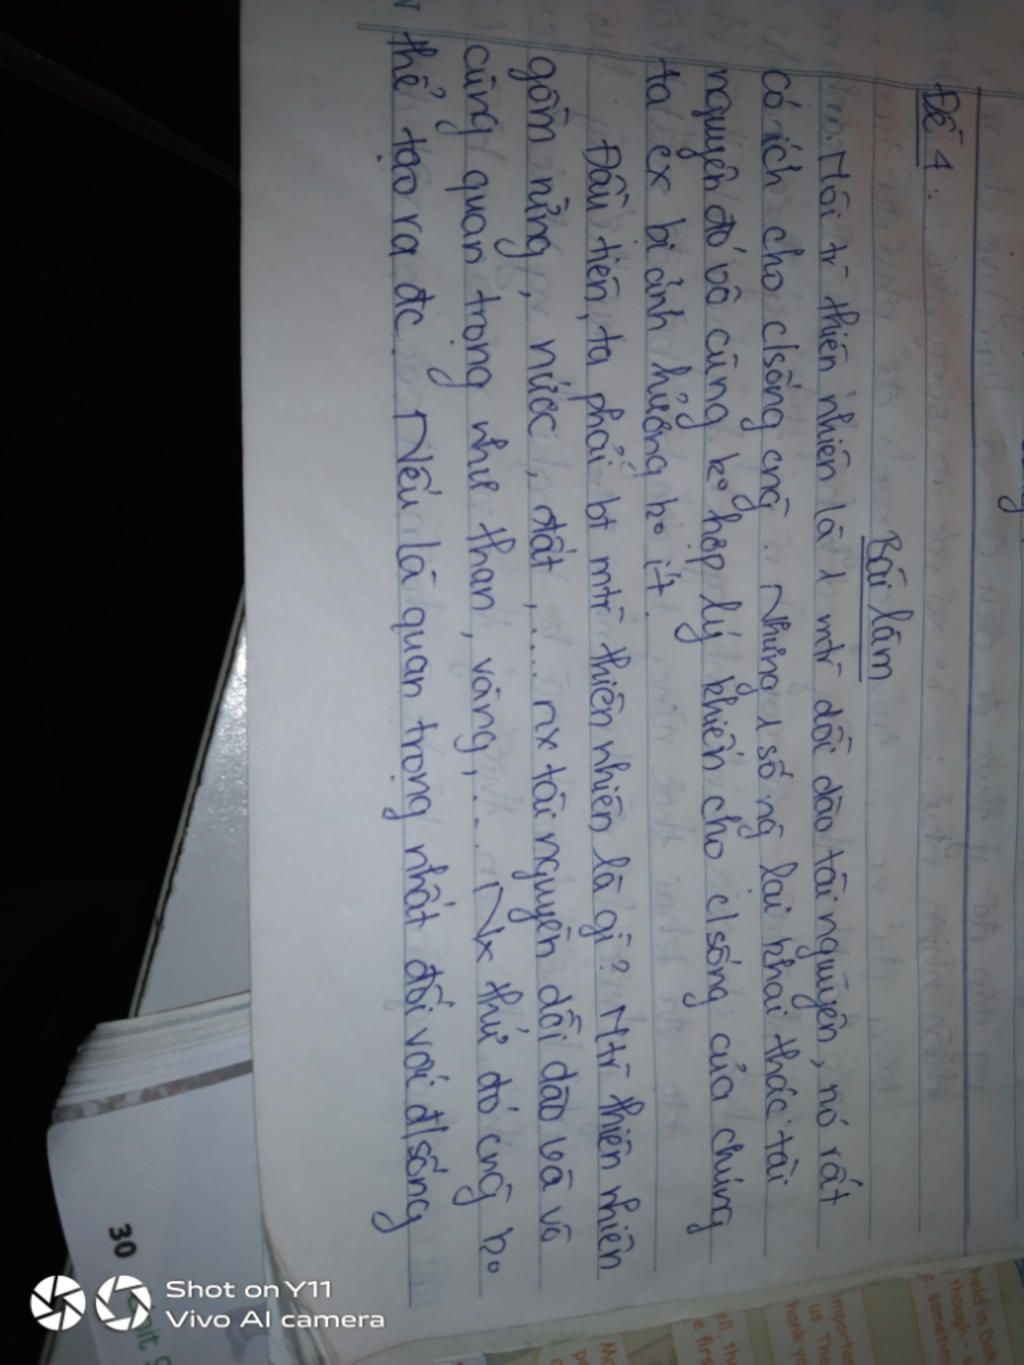 Đề 4:
Bài làm
Môi tr thiên nhiên là 1 mtr dồi dào tài nguyên, nó rất
có ích cho c/sống cng~. Nhưng 1 số ng lại khai thác tài
nguyên đó vô cùng ko hợp lý khiến cho c/sống của chúng
ta cx bị ảnh hưởng ko ít.
Đầu tiên, ta phải bt mtr thiên nhiên là gì? Mtr thiên nhiên
gồm nừng, nước, đất,.... nx tài nguyên dồi dào và vô
cùng quan trọng như than, vàng,... Nx thứ đó cng~ ko
thể tạo ra đc. Nếu là quan trọng nhất đối với đ/sống
30
Shot on Y11
Vivo AI camera